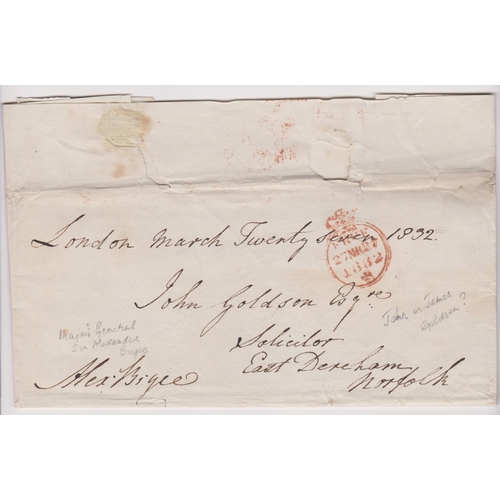 London March Twenty seven 1832.
FREE
27MR27
1832
John Goldson Esqre
Solicitor
East Dereham
Norfolk
Major General
Sir Alexander
John or James
Goldson?
Alex Bryce